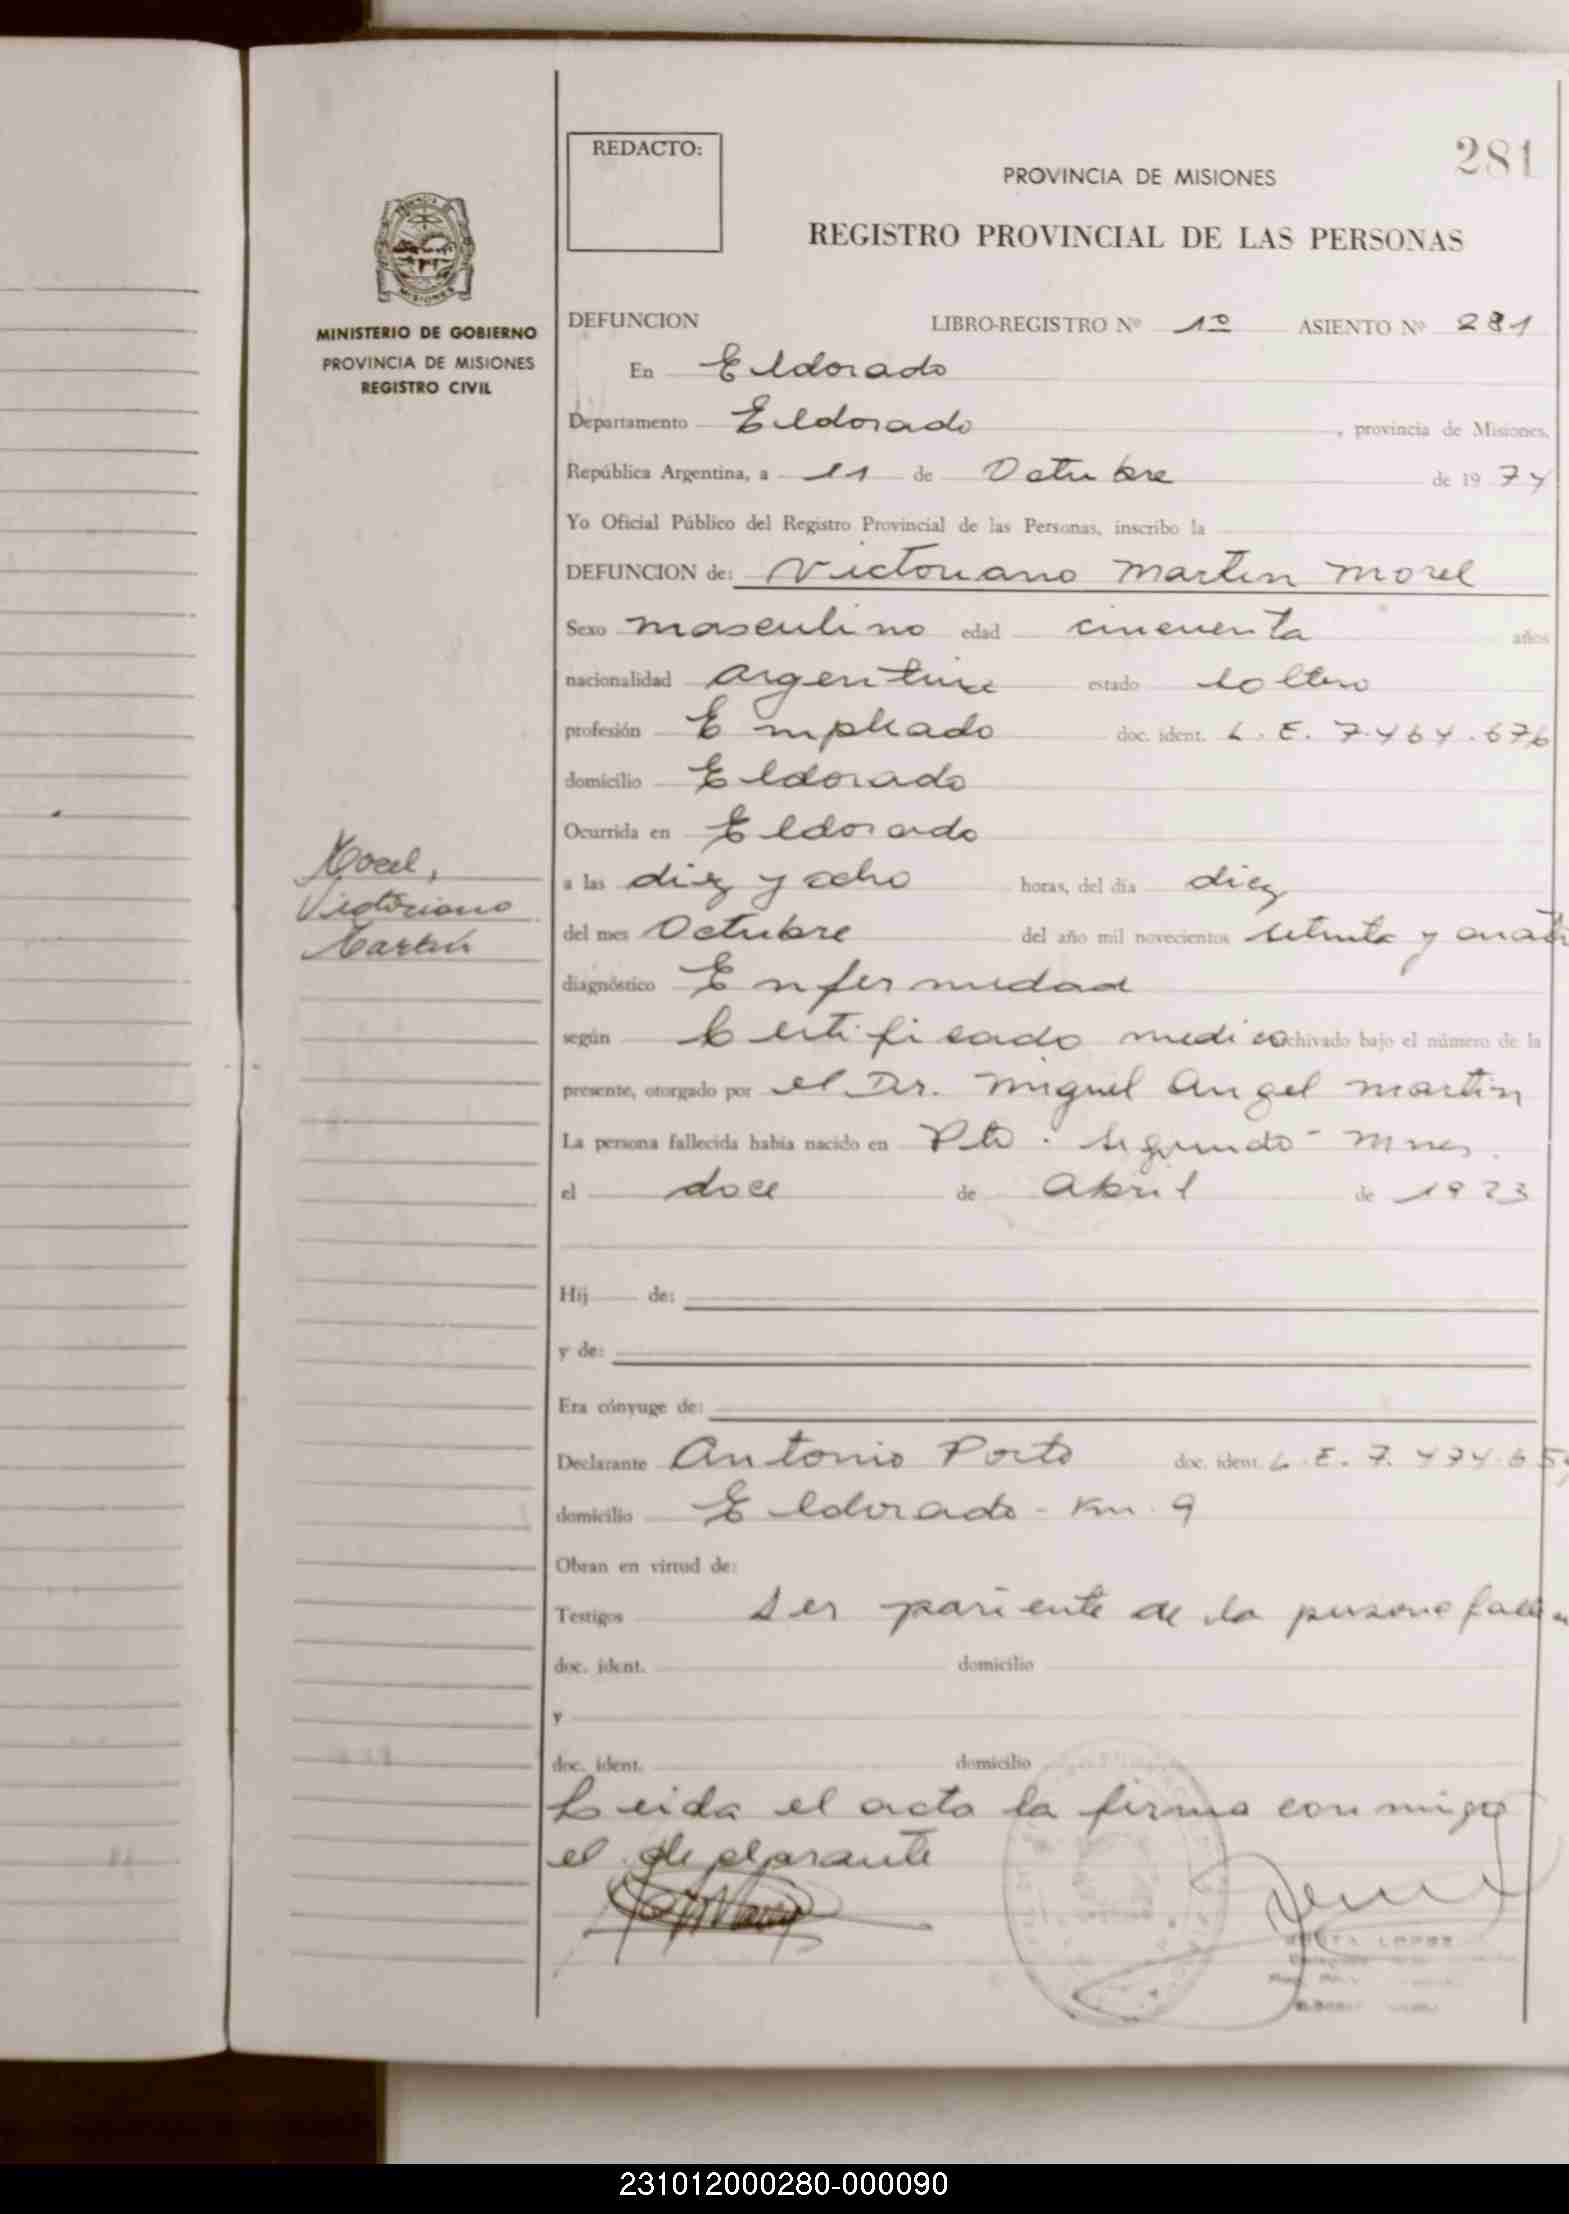 281
REDACTO:
PROVINCIA DE MISIONES
REGISTRO PROVINCIAL DE LAS PERSONAS
MINISTERIO DE GOBIERNO
PROVINCIA DE MISIONES
REGISTRO CIVIL
DEFUNCION LIBRO-REGISTRO Nº 1º ASIENTO Nº 281
En Eldorado
Departamento Eldorado, provincia de Misiones,
República Argentina, a 11 de Octubre de 1974
Yo Oficial Público del Registro Provincial de las Personas, inscribo la
DEFUNCION de: Victoriano Martin Morel
Sexo masculino edad cincuenta años
nacionalidad argentina estado soltero
profesión Empleado doc. ident. L. E. 7.464.676
domicilio Eldorado
Ocurrida en Eldorado
Morel,
Victoriano
Martin
a las diez y ocho horas, del día diez
del mes Octubre del año mil novecientos setenta y cuatro
diagnóstico Enfermedad
según Certificado medico archivado bajo el número de la
presente, otorgado por el Dr. Miguel Angel Martin
La persona fallecida había nacido en Pto. Segundo - Mnes.
el doce de Abril de 1923
Hij de:
y de:
Era cónyuge de:
Declarante Antonio Porto doc. ident. L. E. 7.474.65
domicilio Eldorado - Km. 9
Obran en virtud de:
Testigos ser pariente de la persona
doc. ident. domicilio
y
doc. ident. domicilio
Leida el acta la firma conmigo
el declarante
LOPEZ
231012000280-000090